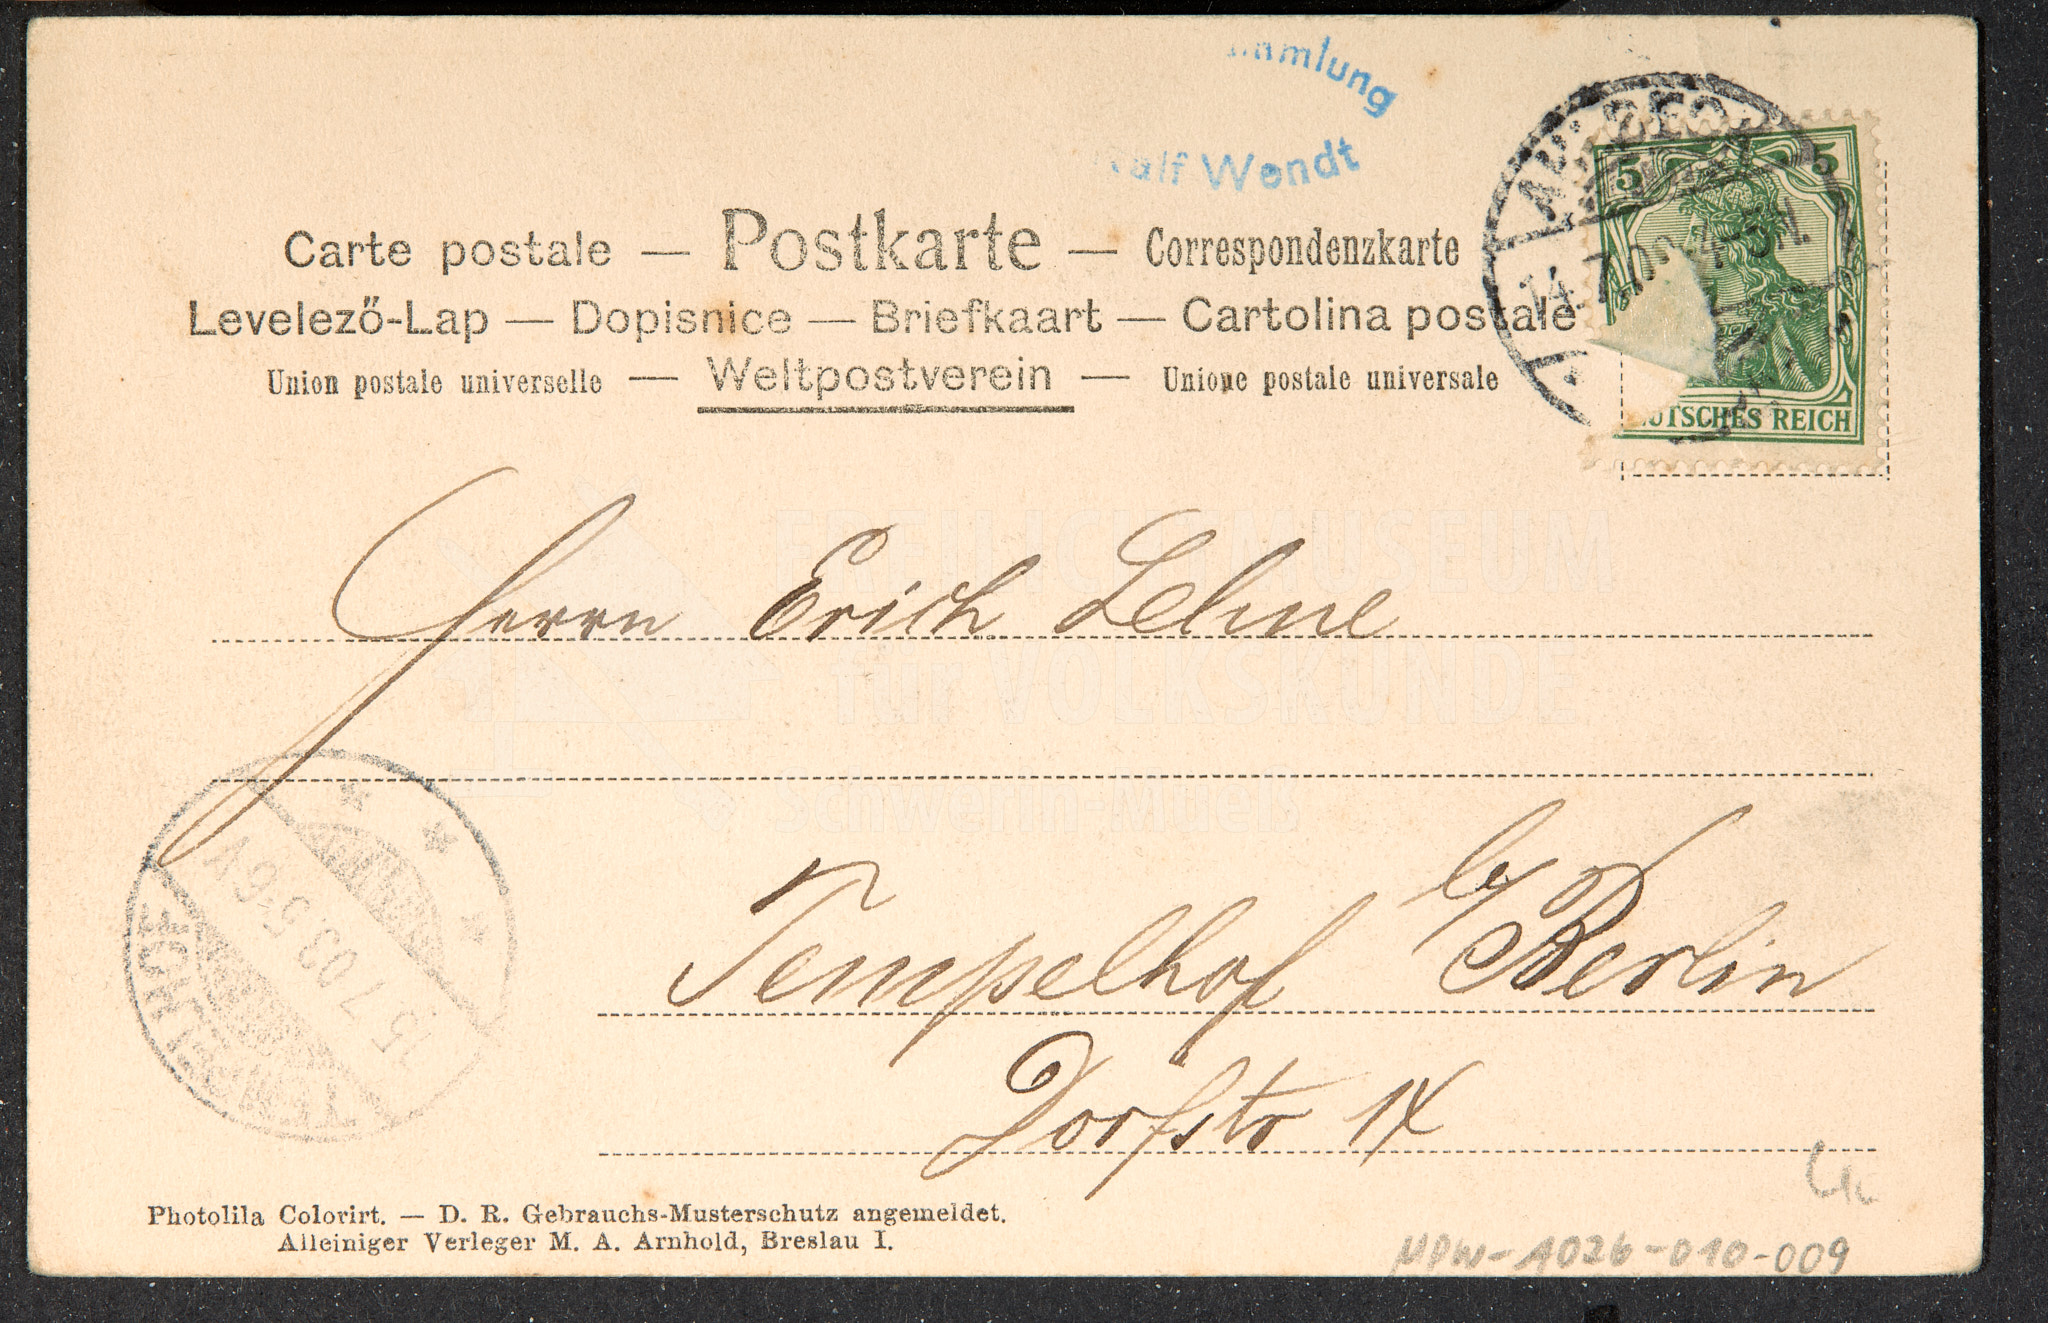 mmlung
Ralf Wendt
Carte postale — Postkarte — Correspondenzkarte
Levelező-Lap — Dopisnice — Briefkaart — Cartolina postale
Union postale universelle — Weltpostverein — Unione postale universale
5 5
14.7.03 4-5N.
DEUTSCHES REICH
FREILICHTMUSEUM
für VOLKSKUNDE
Schwerin-Mueß
Herrn Erich Lehne
Tempelhof b/Berlin
Dorfstr
15.7.03.5-6V
TEMPELHOF
Photolila Colorirt. — D. R. Gebrauchs-Musterschutz angemeldet.
Alleiniger Verleger M. A. Arnhold, Breslau I.
HPW-1026-010-009